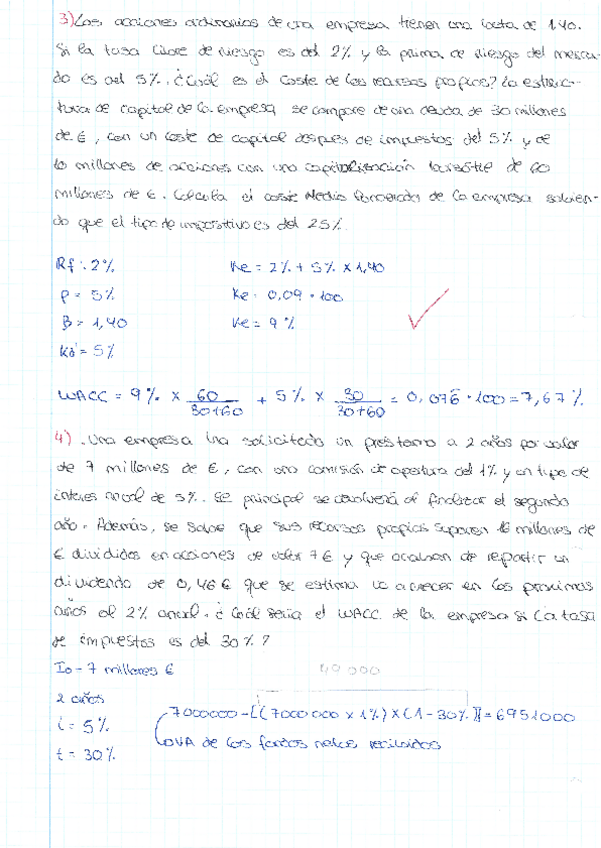 3) Las acciones ordinarias de una empresa tienen una beta de 1.40.
Si la tasa libre de riesgo es del 2% y la prima de riesgo del merca-
do es del 5%. ¿Cuál es el coste de los recursos propios? La estruc-
tura de capital de la empresa se compone de una deuda de 30 millones
de €, con un coste de capital después de impuestos del 5% y de
10 millones de acciones con una capitalización bursátil de 60
millones de €. Calcula el coste Medio Ponderado de la empresa sabien-
do que el tipo de impositivo es del 25%.
Rf: 2%
Ke = 2% + 5% x 1,40
P = 5%
Ke = 0,09 · 100
B = 1,40
Ke = 9 %
Kd = 5%
WACC = 9% x 60/30+60 + 5% x 30/30+60 = 0,076 · 100 = 7,67%
4). Una empresa ha solicitado un préstamo a 2 años por valor
de 7 millones de €, con una comisión de apertura del 1% y un tipo de
interés anual de 5%. Se principal se devolverá al finalizar el segundo
año. Además, se sabe que sus recursos propios suponen 16 millones de
€ divididos en acciones de valor 7€ y que acaban de repartir un
dividendo de 0,46€ que se estima va a crecer en los próximos
años al 2% anual. ¿Cuál sería el WACC de la empresa si la tasa
de impuestos es del 30%?
Io - 7 millones €
49 000
2 años
7000000 - [(7000000 x 1%) x (1 - 30%)] = 6951000
i = 5%
VA de los fondos netos recibidos
t = 30%